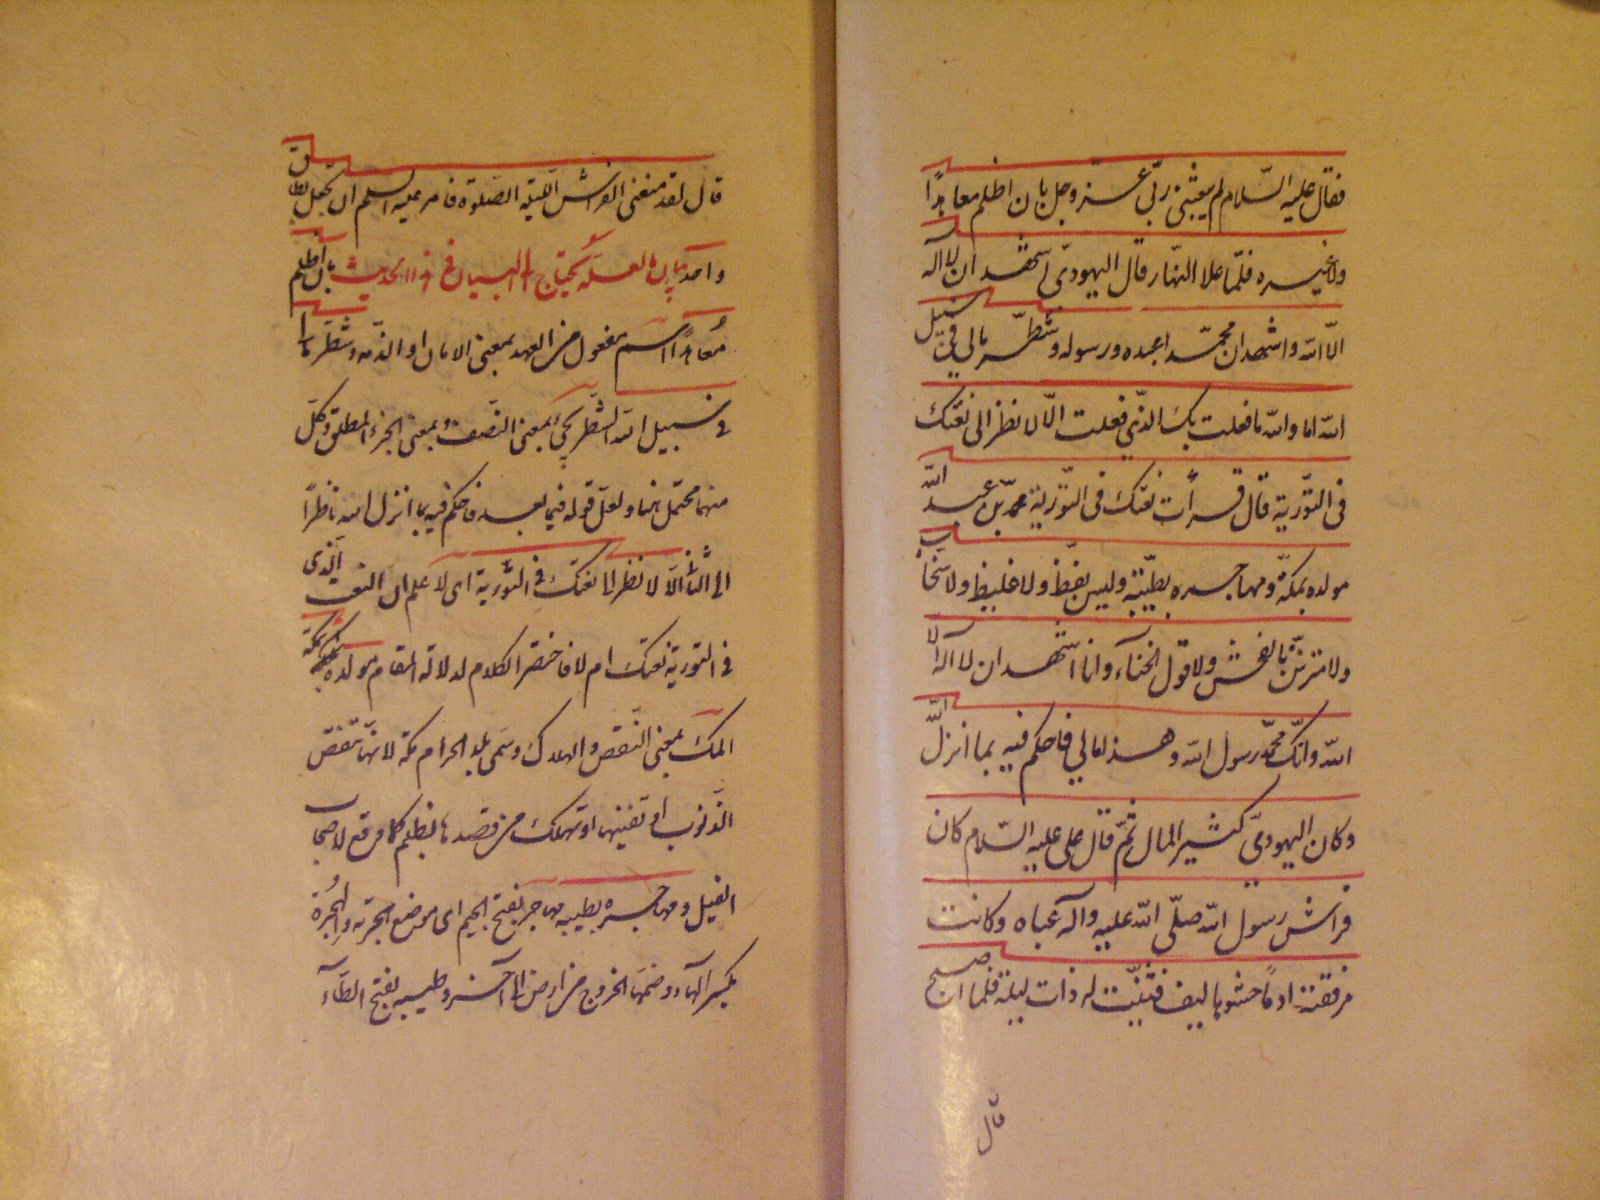 فقال عليه السّلام لم يبعثنى ربّى عزّ وجل بان اظلم معاهدًا
ولا غيره فلمّا علا النهّار قال اليهودى اشهد ان لا اله
الا الله واشهد ان محمّدا عبده ورسوله وشطر مالى فى سبيل
الله اما والله ما فعلت بك الذى فعلت الّا لانظر الى نعتك
فى التّورية قال قرأت نعتك فى التّورية محمد بن عبد الله
مولده بمكّة ومهاجره بطيّبة وليس بفظّ ولا غليظ ولا سخّاب
ولا متزيّن بالفحش ولا قول الخناء وانا اشهد ان لا اله الّا
الله وانّك محمّد رسول الله وهذا مالي فاحكم فيه بما انزل الله
وكان اليهودىّ كثير المال ثمّ قال على عليه السّلام كان
فراش رسول الله صلّى الله عليه وآله عباه وكانت
مرفقته ادمًا حشوها ليف فثنّيت له ذات ليلة فلما اصبح
قال
قال لقد منعنى الفراش الليلة الصّلوة فامر عليه السلم ان يجعل بطاق
واحد بيان ما لعلّه يحتاج الى البيان فى هذا الحديث بان اظلم
معاهدًا اسم مفعول من العهد بمعنى الامان او الذمّه وشطر مالى
فى سبيل الله الشّطر يجئ بمعنى النّصف وبمعنى الجزء المطلق وكلّ
منهما محتمل هنا ولعلّ قوله فيما بعد فاحكم فيه بما انزل الله ناظرًا
الى الثانى الّا لانظر الى نعتك فى التّورية اى لاعلم ان النعت الّذى
فى التورية نعتك ام لا فاختصر الكلام لدلالة المقام مولده بمكة
المكّ بمعنى النّقص والهلاك وسمى بلد الحرام مكّة لانّها تنقص
الذّنوب او تفنيها او تهلك من قصدها بظلم كما وقع لاصحاب
الفيل ومهاجره بطيبه مهاجر بفتح الجيم اى موضع هجرته والهجرة
بكسر الهآء وضمّها الخروج من ارض الى آخر وطيبه بفتح الطّآء